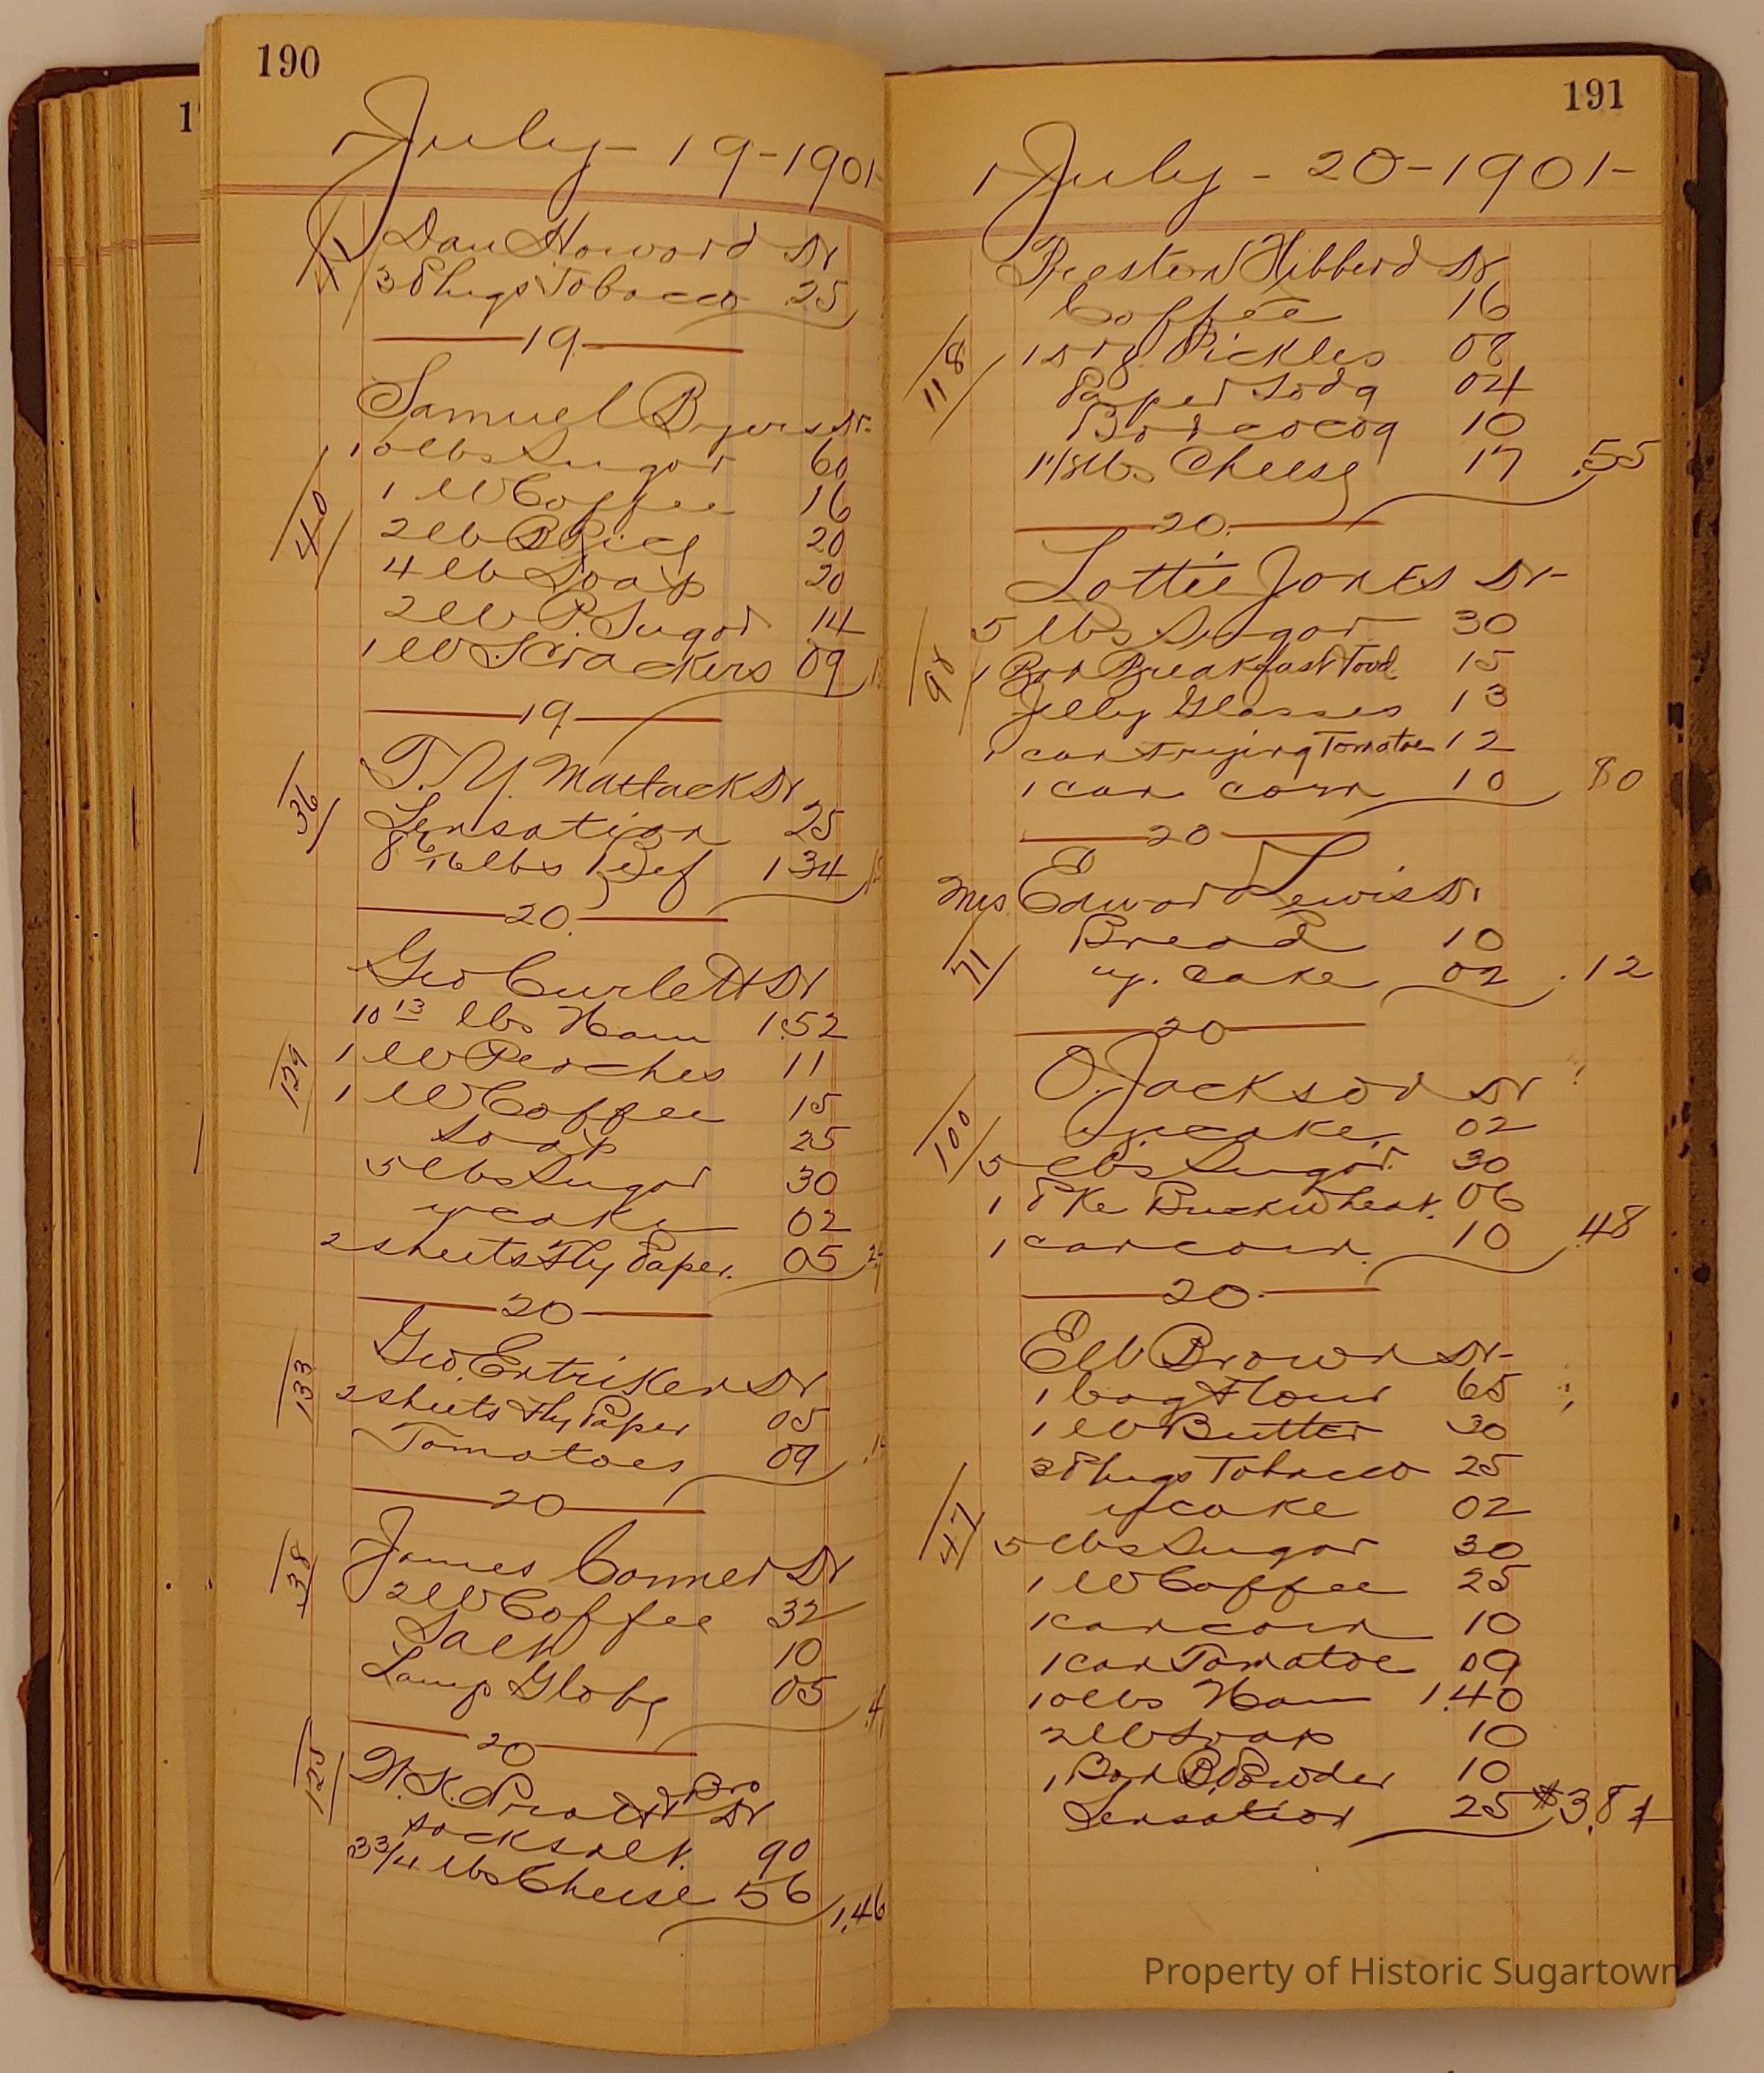 190
July - 19 - 1901
41
Dan Howard Dr
3 Plugs Tobacco 25
19
Samuel Byers Dr
40
10 lbs Sugar 60
1 lb Coffee 16
2 lb Rice 20
4 lb Soap 20
2 lb P. Sugar 14
1 lb S Crackers 09
19
36
T. Y. Matlack Dr
Sensation 25
8 6/16 lbs Beef 1 34
20
Geo Curlett Dr
129
10 13 lbs Ham 1.52
1 lb Peaches 11
1 lb Coffee 15
Soap 25
5 lbs Sugar 30
y cake 02
2 sheets Fly Paper. 05
20
133
Geo. Entriken Dr
2 sheets Fly Paper 05
Tomatoes 09
20
38
James Conner Dr
2 lb Coffee 32
Salt 10
Lamp Globe 05
20
125
Pratt & Bro Dr
sack salt. 90
3 3/4 lbs Cheese 56 1.46
191
July - 20 - 1901 -
Preston Hibberd Dr
118
Coffee 16
Pickles 08
Paper Soda 04
Box cocoa 10
1 1/8 lbs Cheese 17 .55
20
Lottie Jones Dr -
98
5 lbs Sugar 30
1 Box Breakfast Food 15
Jelly Glasses 13
1 can Frying Tomatoe 12
1 can corn 10 80
20
Mrs Edward Lewis Dr
71
Bread 10
y. cake 02 .12
20
O. Jackson Dr
100
y. cake. 02
5 lbs Sugar. 30
1 Pke Buckwheat. 06
1 can corn. 10 .48
20
Ell Brown Dr -
47
1 bag Flour 65
1 lb Butter 30
3 Plugs Tobacco 25
y cake 02
5 lbs Sugar 30
1 lb Coffee 25
1 can corn 10
1 can Tomatoe 09
10 lbs Ham 1.40
2 lb Soap 10
1 Box B. Powder 10
Sensation 25 $3.81
Property of Historic Sugartown